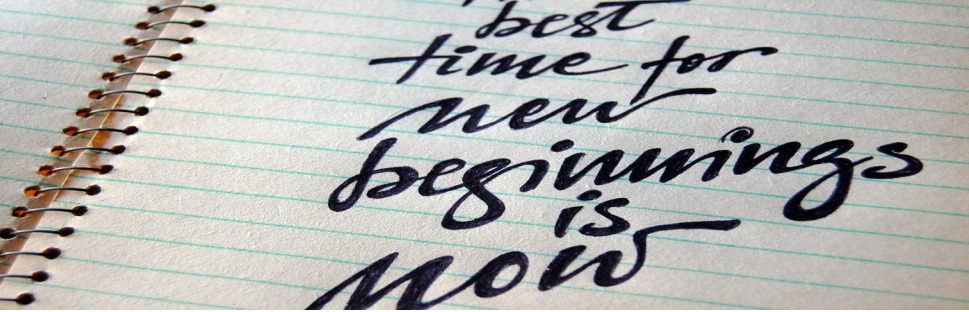 best
time for
new
beginnings
is
now